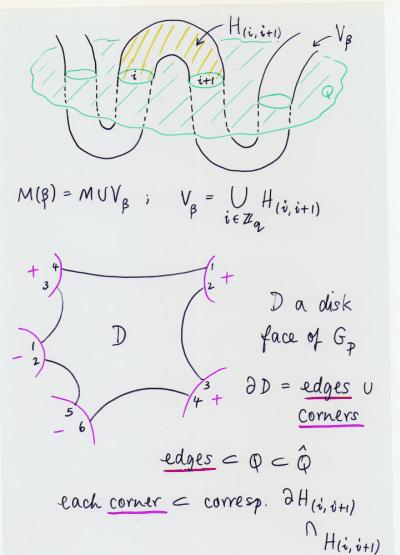 H(i, i+1)
V_β
i
i+1
Q
M(β) = M ∪ V_β ; V_β = ⋃_{i∈ℤ_q} H(i, i+1)
+ 4 1 +
3 2
D
D a disk
face of G_P
- 1
2
3
4 +
5
- 6
∂D = edges ∪
corners
edges ⊂ Q ⊂ Q̂
each corner ⊂ corresp. ∂H(i, i+1)
∩
H(i, i+1)